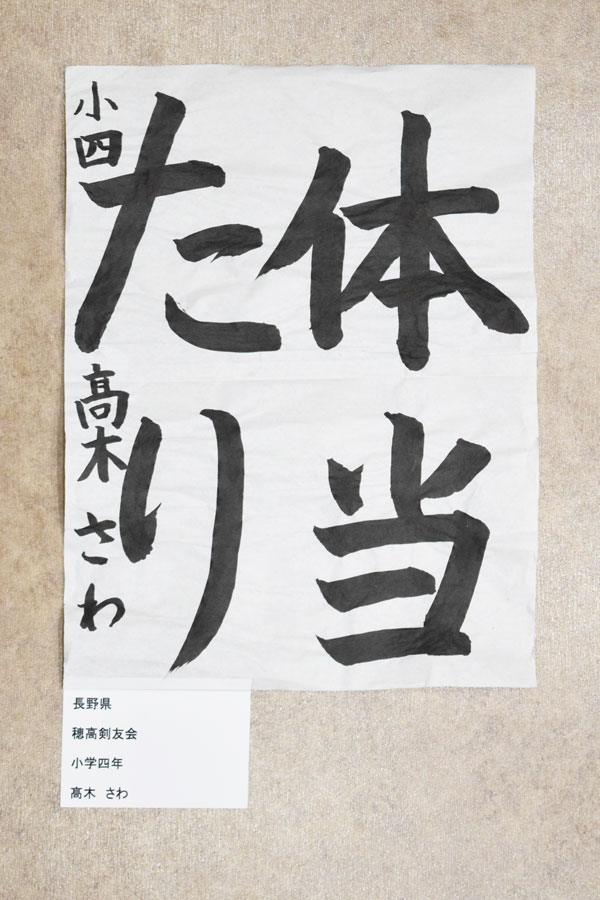 体当
たり
小四 髙木 さわ
長野県
穂高剣友会
小学四年
髙木 さわ